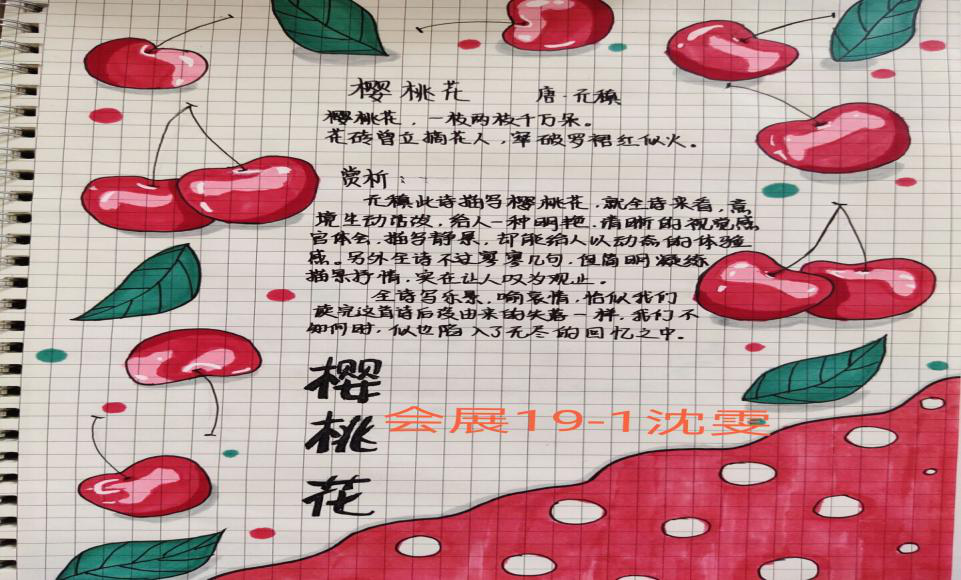 樱桃花 唐·元稹
樱桃花，一枝两枝千万朵。
花砖曾立摘花人，窣破罗裙红似火。
赏析：
元稹此诗描写樱桃花，就全诗来看，意
境生动活泼，给人一种明艳、清晰的视觉感
官体会，描写静景，却能给人以动态的体验
感。另外全诗不过寥寥几句，但简明凝练
描景抒情，实在让人叹为观止。
全诗写乐景，喻哀情，恰似我们
读完这首诗后没由来的失落一样，我们不
知何时，似也陷入了无尽的回忆之中。
樱
桃
花
会展19-1沈雯